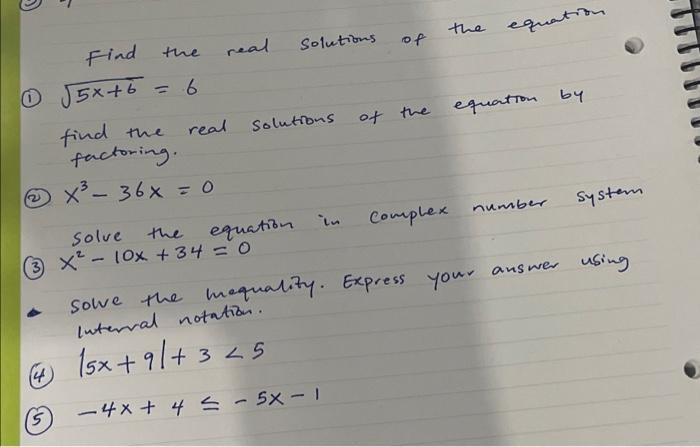 Find the real solutions of the equation
① √5x+6 = 6
find the real solutions of the equation by
factoring.
② x³ - 36x = 0
solve the equation in complex number system
③ x² - 10x + 34 = 0
solve the inequality. Express your answer using
Interval notation.
④ |5x + 9| + 3 < 5
⑤ -4x + 4 ≤ -5x - 1